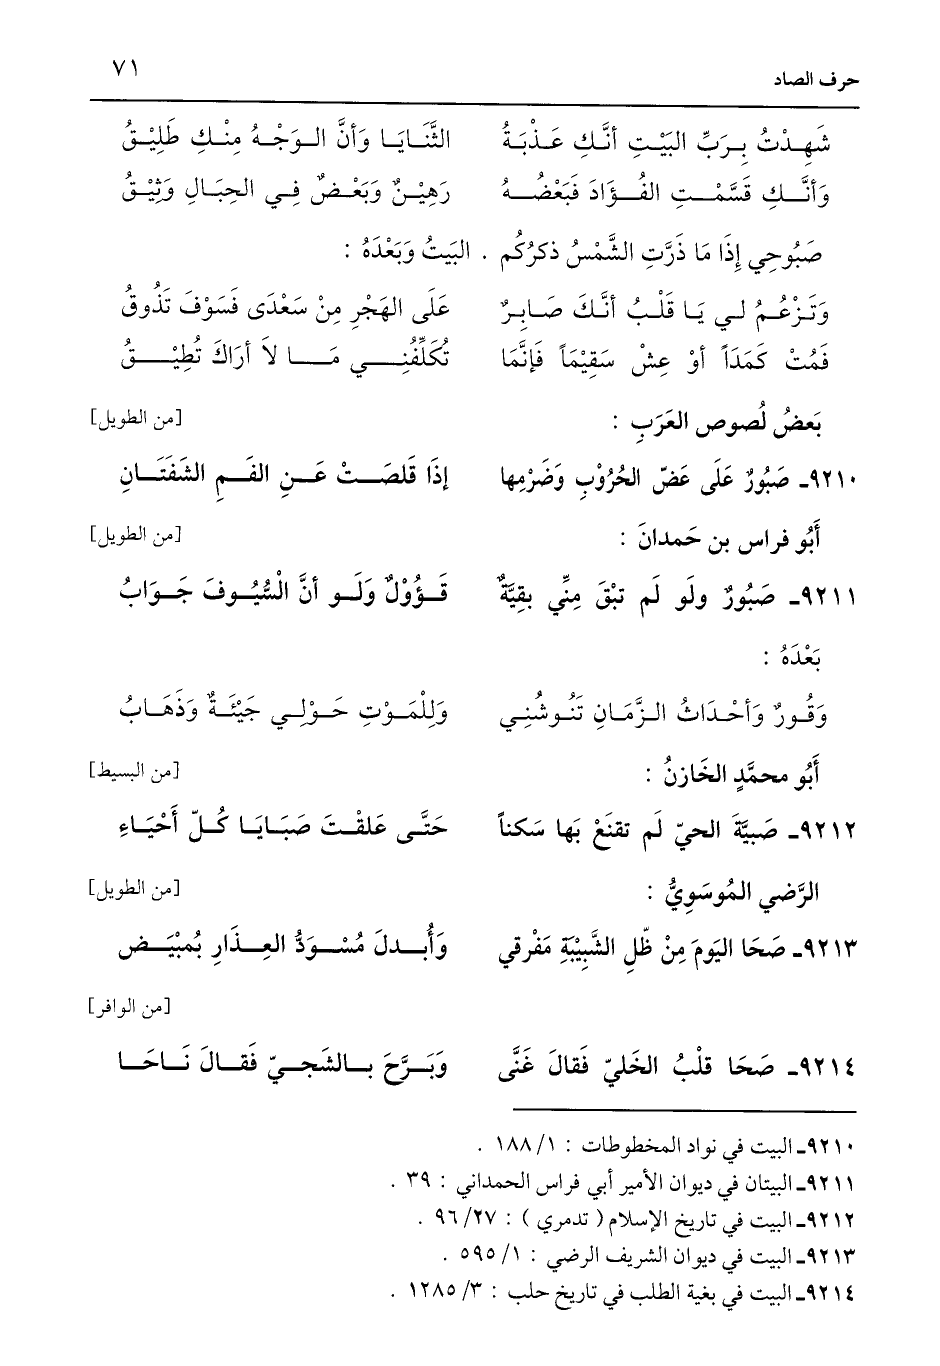 حرف الصاد ٧١
شَهِدْتُ بِرَبِّ البَيْتِ أنَّكِ عَذْبَةُ الثَّنَايَا وَأنَّ الوَجْهُ مِنْكِ طَلِيْقُ
وَأنَّكِ قَسَّمْتِ الفُؤَادَ فَبَعْضُهُ رَهِيْنٌ وَبَعْضٌ فِي الحِبَالِ وَثِيْقُ
صَبُوحِي إِذَا مَا ذَرَّتِ الشَّمْسُ ذكرُكُم . البَيتُ وَبَعْدَهُ :
وَتَزْعُمُ لي يَا قَلْبُ أنَّكَ صَابِرٌ عَلَى الهَجْرِ مِنْ سَعْدَى فَسَوْفَ تَذُوقُ
فَمُتْ كَمَدَاً أوْ عِشْ سَقِيْمَاً فَإِنَّمَا تُكَلِّفُنِي مَا لاَ أرَاكَ تُطِيْقُ
بَعضُ لُصوص العَرَبِ : [من الطويل]
٩٢١٠ـ صَبُورٌ عَلَى عَضّ الحُرُوْبِ وَضَرْمِها إذَا قَلصَتْ عَنِ الفَمِ الشَفَتَانِ
أَبُو فراس بن حَمدانَ : [من الطويل]
٩٢١١ـ صَبُورٌ ولَو لَم تبْقَ مِنِّي بقِيَّةٌ قَؤُوْلٌ وَلَو أنَّ السُّيُوفَ جَوَابُ
بَعْدَهُ :
وَقُورٌ وَأحْدَاثُ الزَّمَانِ تَنُوشُنِي وَلِلْمَوْتِ حَوْلِي جَيْئَةٌ وَذَهَابُ
أَبُو محمَّدٍ الخَازنُ : [من البسيط]
٩٢١٢ـ صَبيَّةَ الحيّ لَم تقنَعْ بَها سَكناً حَتَّى عَلقْتَ صَبَايَا كُلّ أَحْيَاءِ
الرَّضي المُوسَوِيُّ : [من الطويل]
٩٢١٣ـ صَحَا اليَومَ مِنْ ظّلِ الشَّبِيْبَةِ مَفْرقي وَأُبدلَ مُسْوَدُّ العِذَارِ بمُبْيَض
[من الوافر]
٩٢١٤ـ صَحَا قلْبُ الخَليّ فَقالَ غَنَّى وَبَرَّحَ بالشَجيّ فَقالَ نَاحَا
٩٢١٠ـ البيت في نواد المخطوطات : ١/ ١٨٨ .
٩٢١١ـ البيتان في ديوان الأمير أبي فراس الحمداني : ٣٩ .
٩٢١٢ـ البيت في تاريخ الإسلام ( تدمري ) : ٢٧/ ٩٦ .
٩٢١٣ـ البيت في ديوان الشريف الرضي : ١/ ٥٩٥ .
٩٢١٤ـ البيت في بغية الطلب في تاريخ حلب : ٣/ ١٢٨٥ .